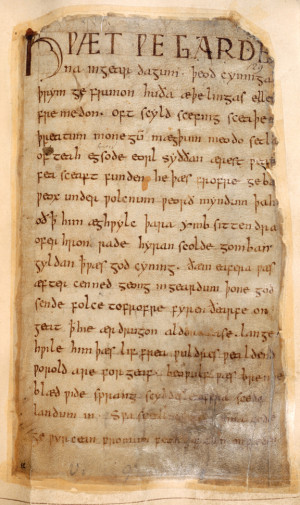 HǷÆT ǷE GARDE
na ingear dagum. þeod cyninga
þrym ge frunon huða æþelingas elle[n]
fre medon. oft scyld scefing sceaþe[na]
þreatum monegū mægþum meodo setl[a]
of teah egsode eorl syððan ærest ƿear[ð]
fea sceaft funden he þæs frofre geba[d]
ƿeox under ƿolcnum ƿeorð myndum þah
oð þ him æghƿylc þara ymb sittendra
ofer hron rade hyran scolde gomban
gyldan þæs god cyning. ðæm eafera ƿæs
æfter cenned geong ingeardum þone god
sende folce tofrofre fyren ðearfe on
geat þ hie ær drugon aldor ase. lange
hƿile him þæs lif frea ƿuldres ƿealdend
ƿorold are for geaf. beoƿulf ƿæs breme
blæd ƿide sprang scyldes eafera scede
landum in. Sƿa sceal
ge ƿyrcean fromum